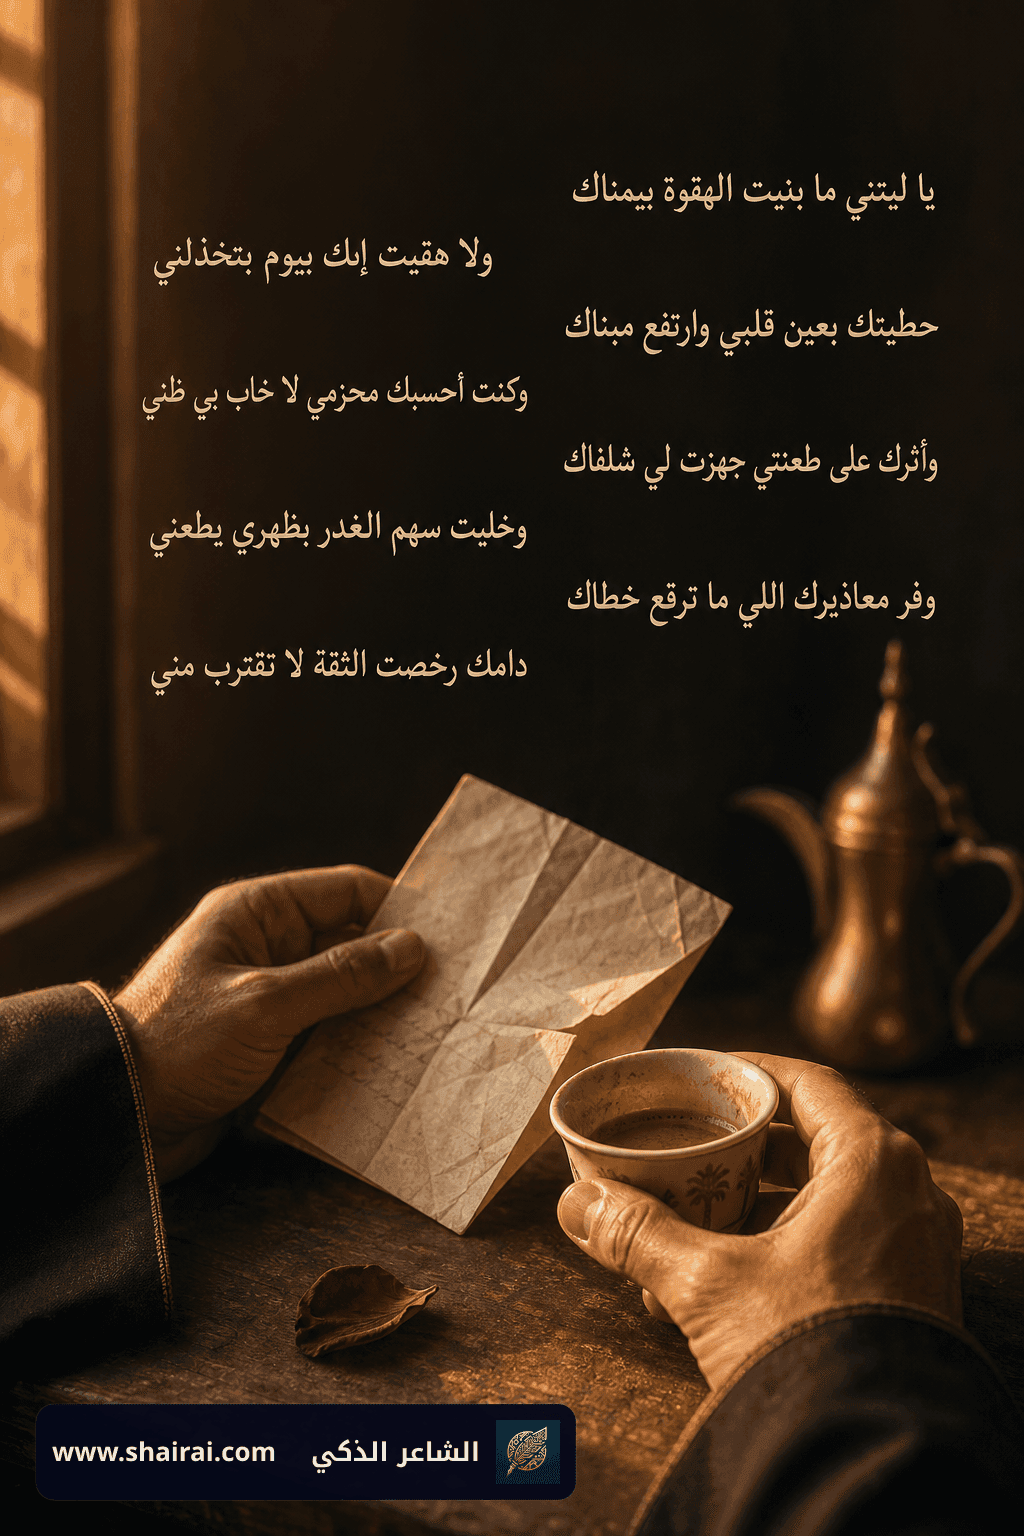 يا ليتني ما بنيت الهقوة بيمناك
ولا هقيت إنك بيوم بتخذلني
حطيتك بعين قلبي وارتفع مبناك
وكنت أحسبك محزمي لا خاب بي ظني
وأثرك على طعنتي جهزت لي شلفاك
وخليت سهم الغدر بظهري يطعني
وفر معاذيرك اللي ما ترقع خطاك
دامك رخصت الثقة لا تقترب مني
الشاعر الذكي www.shairai.com